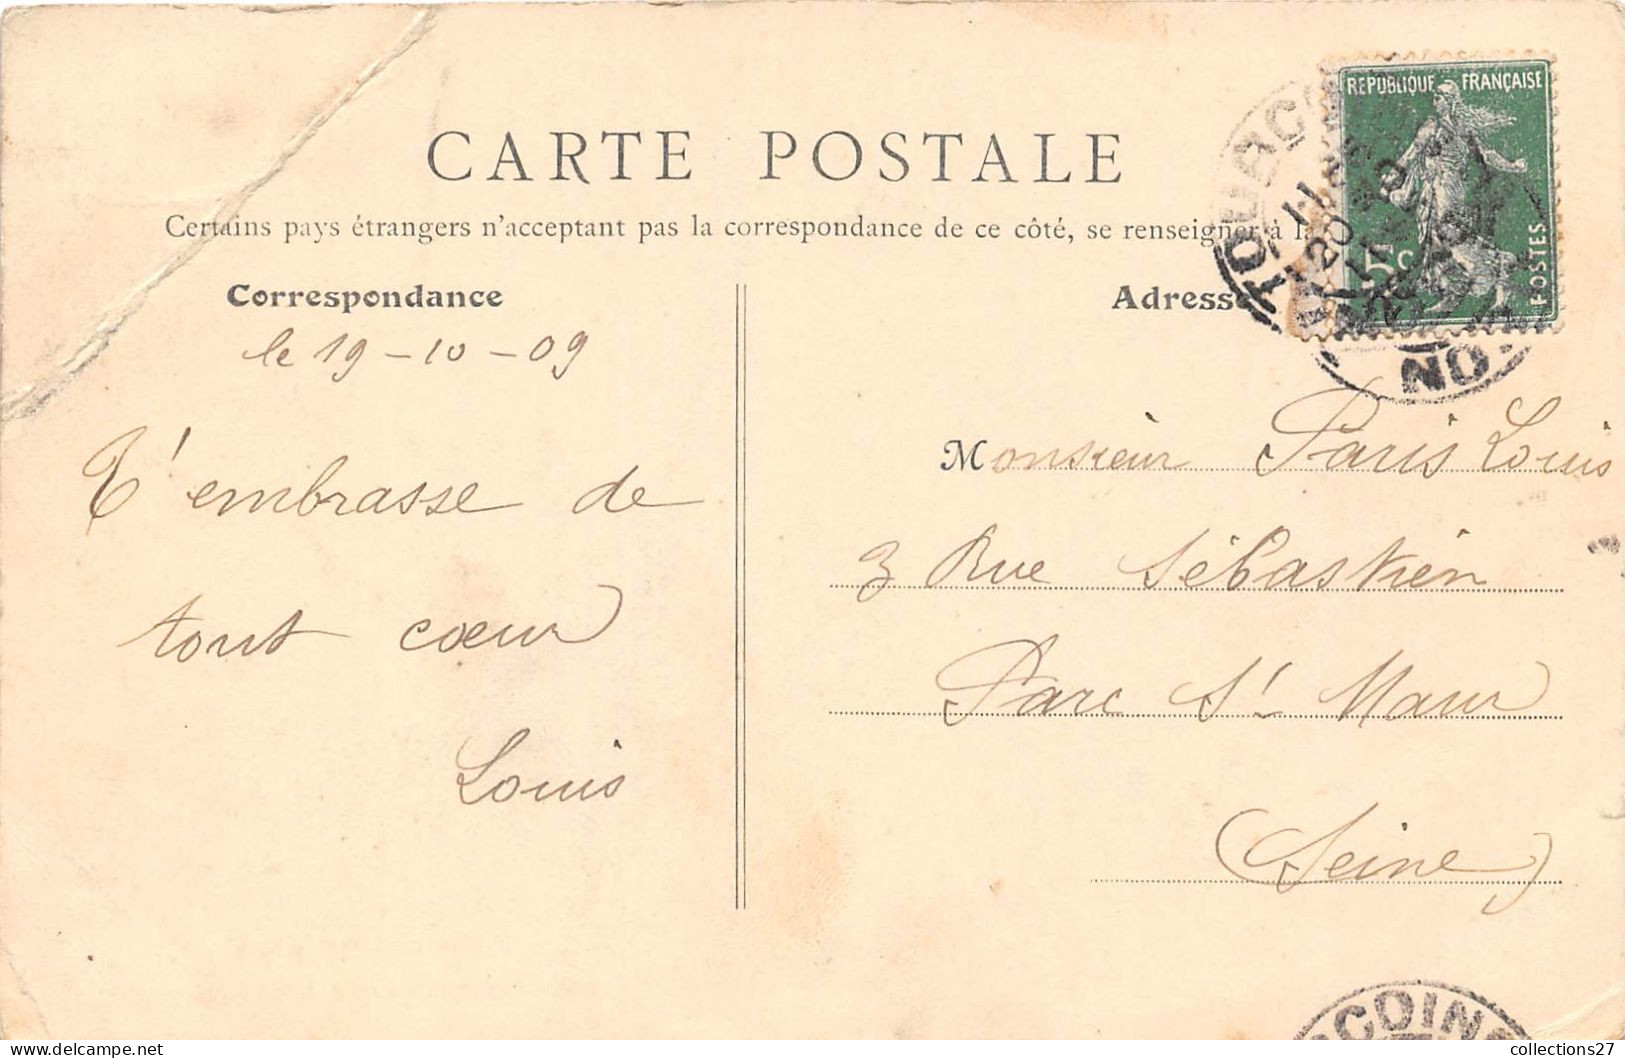 CARTE POSTALE
Certains pays étrangers n'acceptant pas la correspondance de ce côté, se renseigner à l
Correspondance
le 19-10-09
T'embrasse de
tout cœur
Louis
Adresse
REPUBLIQUE FRANÇAISE
5c
POSTES
TOURCO
NO
Monsieur Paris Louis
3 Rue Sébastien
Parc St Maur
(Seine)
RCOING
collections27